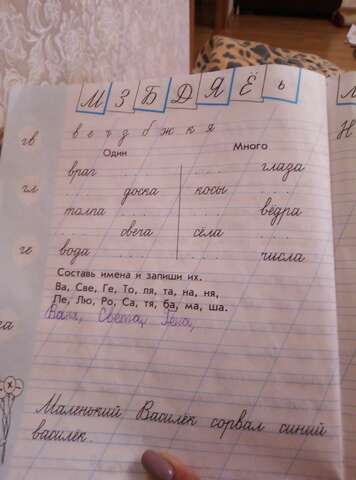 М З Б Д Я Ё ь
гв в е ч д б ж к я
Один Много
враг .... .... глаза
гл .... доска косы ....
толпа .... .... вёдра
.... свеча сёла ....
ге вода .... .... числа
Составь имена и запиши их.
Ва, Све, Ге, То, ля, та, на, ня,
Ле, Лю, Ро, Са, тя, ба, ма, ша.
Ваня, Света, Гена,
Маленький Василёк сорвал синий
василёк.